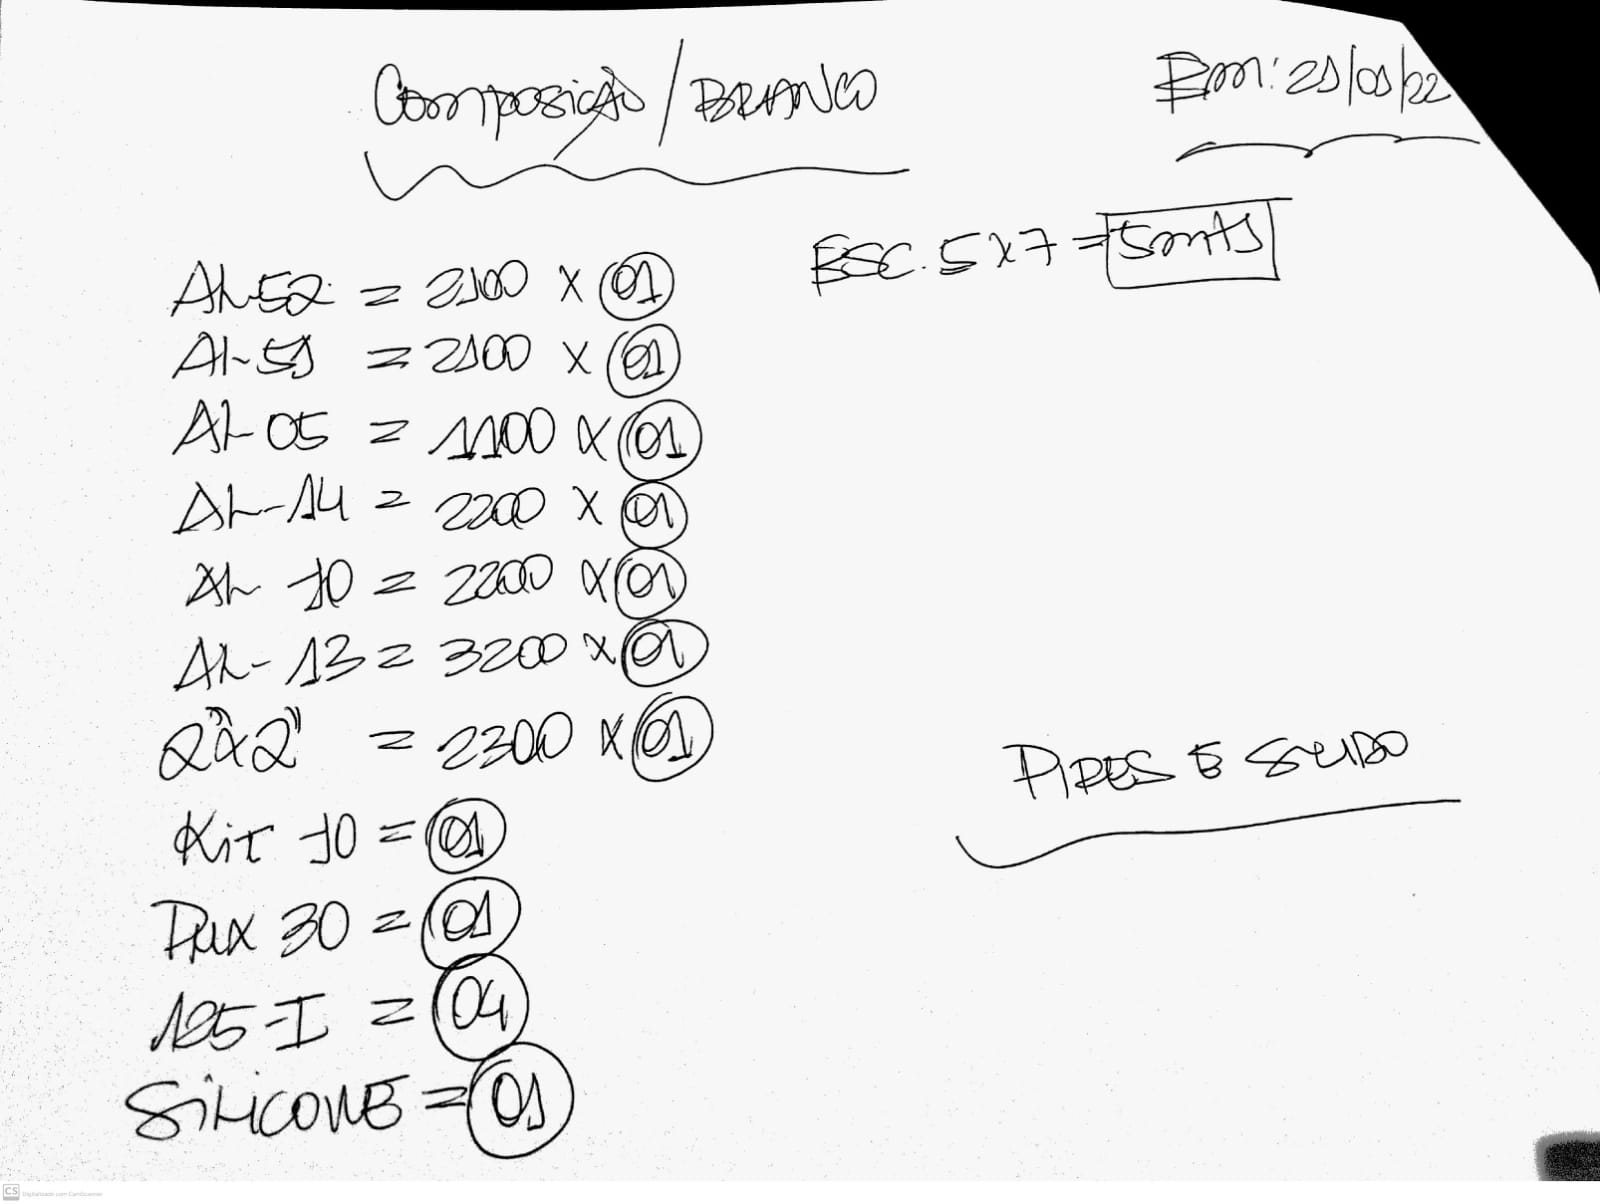 Composição / BRANCO
Em: 21/01/22
ESC. 5x7 = 5mts
AL-52 = 2100 x 01
AL-51 = 2100 x 01
AL-05 = 1100 x 01
AL-14 = 2200 x 01
AL-10 = 2200 x 01
AL-13 = 3200 x 01
2"x2" = 2300 x 01
Kit 10 = 01
30 = 01
125-I = 04
SILICONE = 01
CS Digitalizado com CamScanner